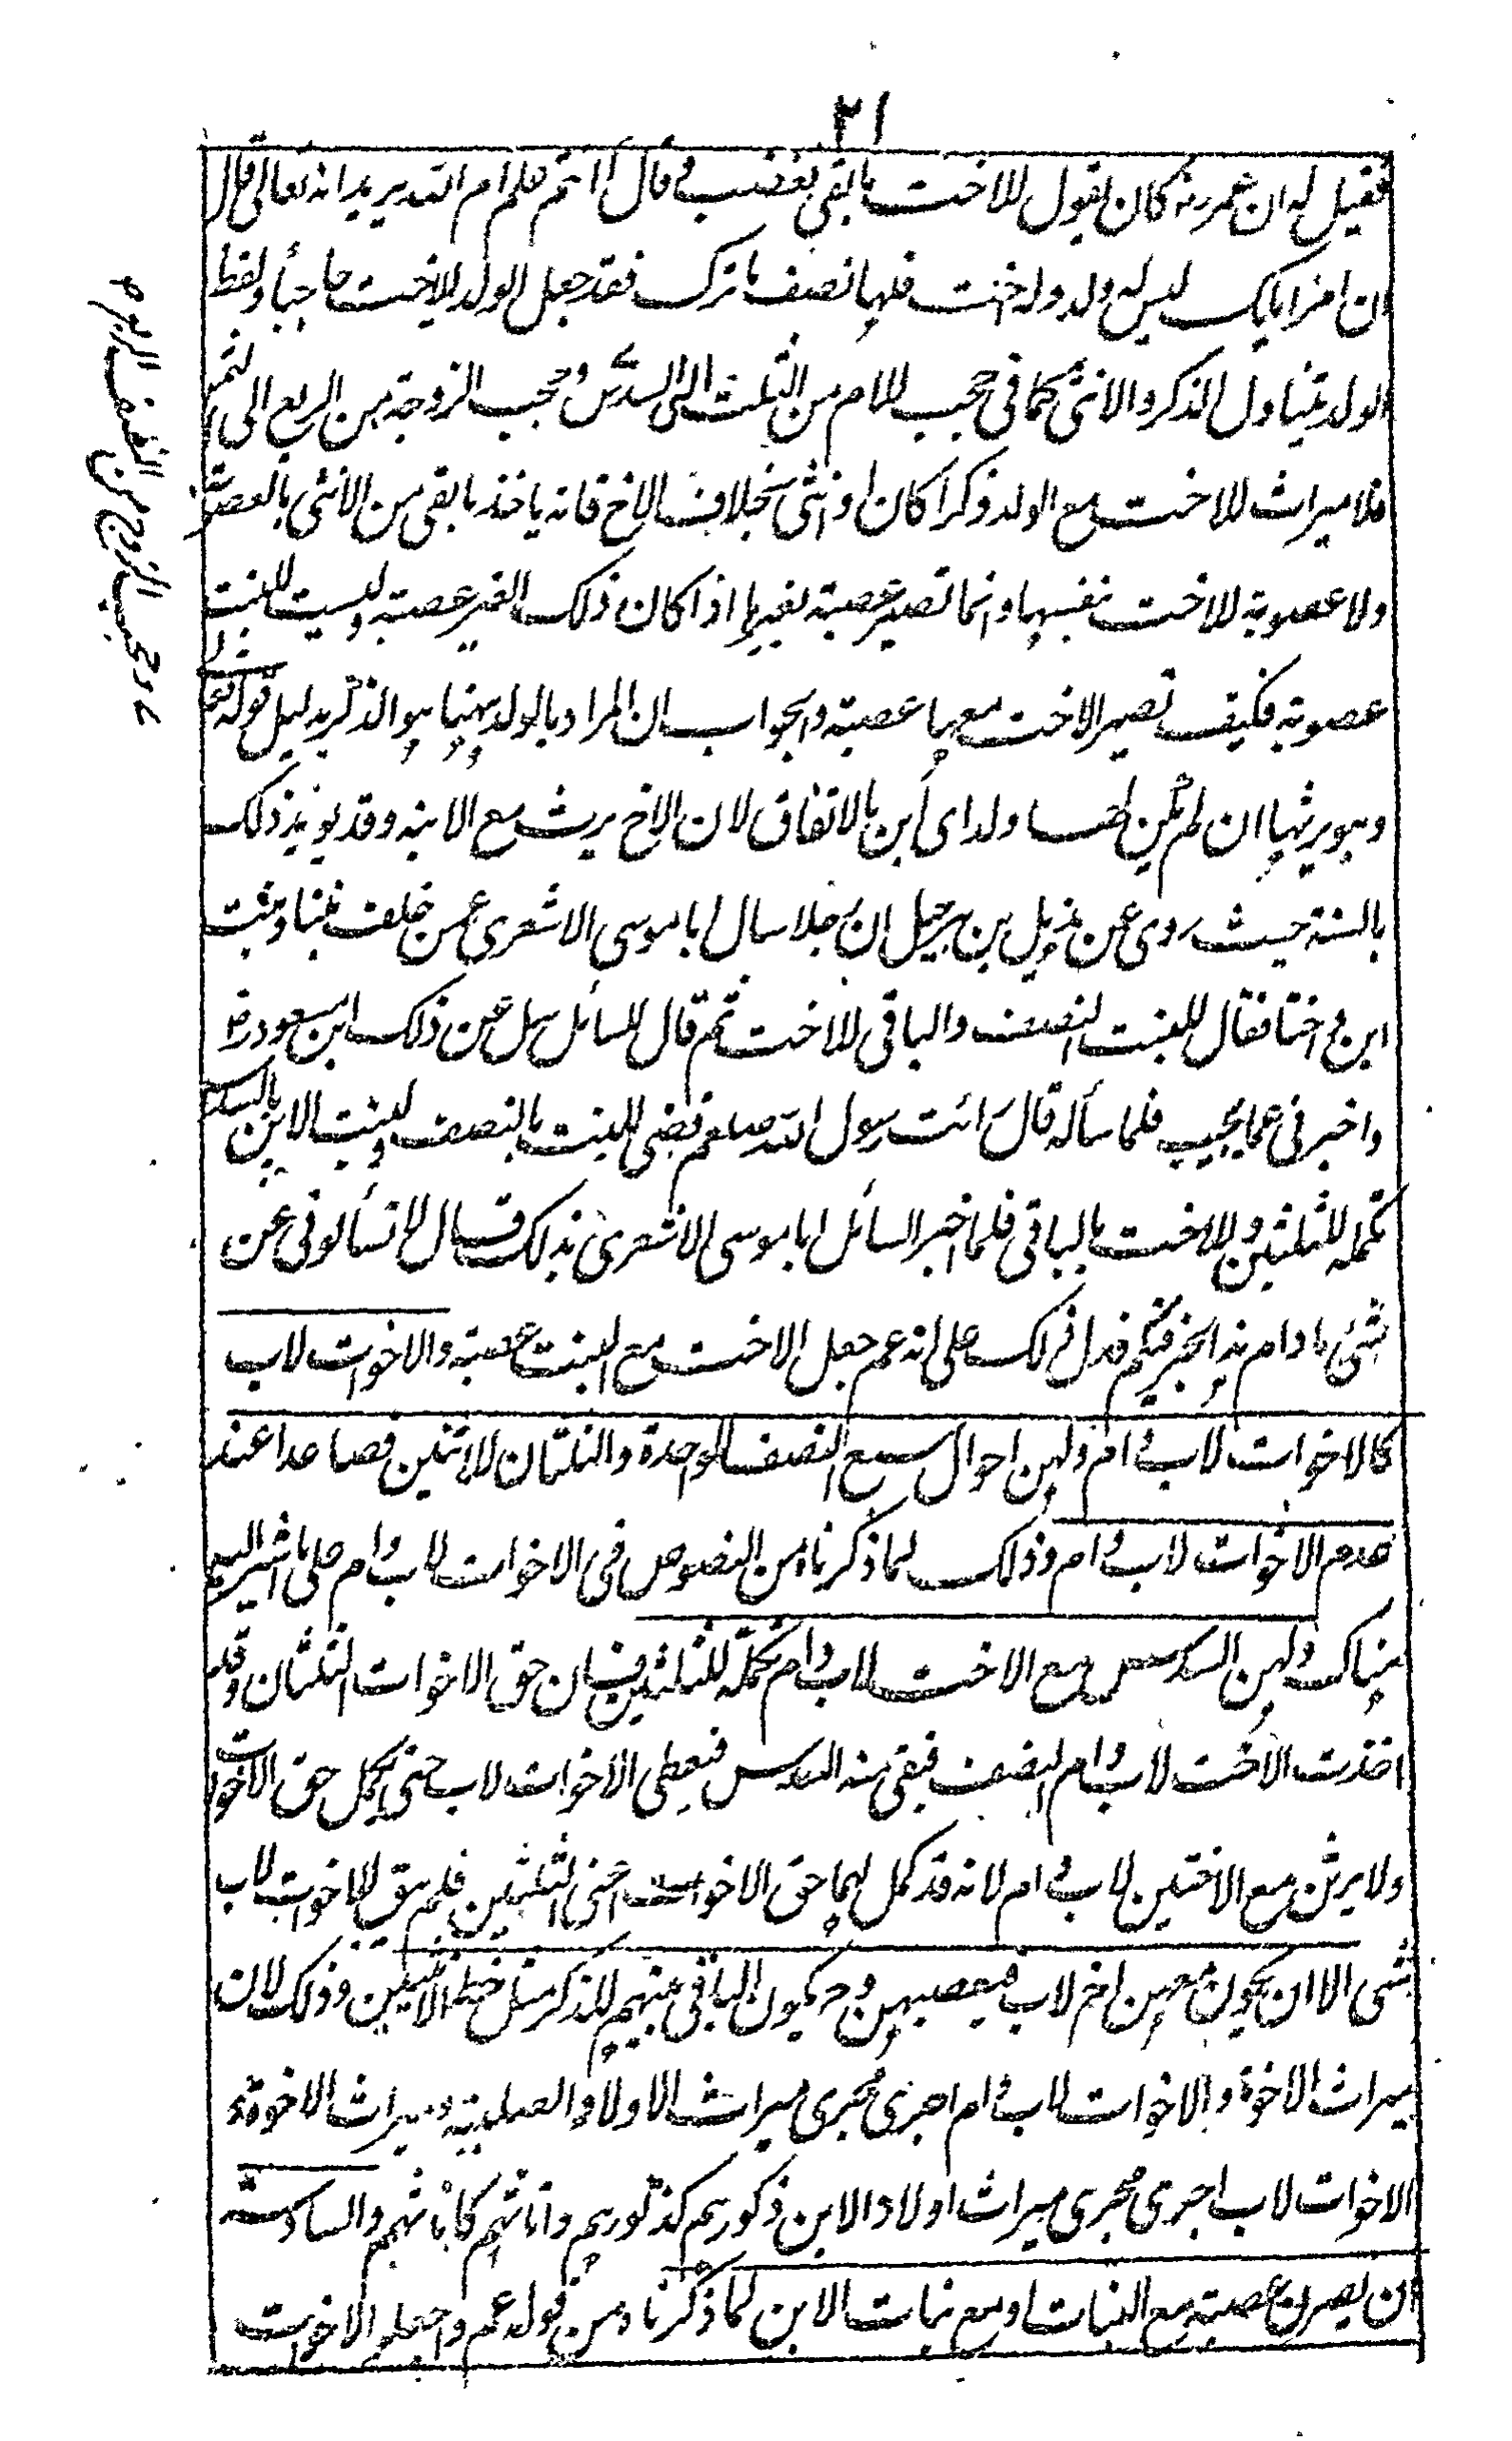 ٢١
فقيل له ان عمر رضه كان يقول للاخت ما بقى فغضب و قال أ انتم اعلم ام الله يريد انه تعالى قال
ان امرأ هلك ليس له ولد وله اخت فلها نصف ما ترك فقد جعل الولد للاخت حاجبا و لفظ
الولد يتناول الذكر والانثى كما فى حجب الام من الثلث الى السدس و حجب الزوجة من الربع الى الثمن
فلا ميراث للاخت مع الولد ذكرا كان او انثى بخلاف الاخ فانه ياخذ ما بقى من الانثى بالعصوبة
ولا عصوبة للاخت بنفسها و انما تصير عصبة بغيرها اذا كان ذلك الغير عصبة وليست للبنت
عصوبة فكيف تصير الاخت معها عصبة والجواب ان المراد بالولد ههنا هو الذكر بدليل قوله تعا
وهو يرثها ان لم يكن لها ولد اى ابن بالاتفاق لان الاخ يرث مع الابنة وقد يؤيد ذلك
بالسنة حيث روى عن هزيل بن شرحبيل ان رجلا سال ابا موسى الاشعرى عمن خلف بنتا و بنت
ابن و اختا فقال للبنت النصف والباقى للاخت ثم قال للسائل سل عن ذلك ابن مسعود رض
واخبرنى عما يجيب فلما سأله قال رائت رسول الله صلعم قضى للبنت بالنصف ولبنت الابن بالسدس
تكملة للثلثين وللاخت بالباقى فلما اخبر السائل ابا موسى الاشعرى بذلك قال لا تسألونى عن
شئ ما دام هذا الحبر فيكم فدل ذلك على انه عم جعل الاخت مع البنت عصبة والاخوات لاب
كالاخوات لاب و ام ولهن احوال سبع النصف للواحدة والثلثان للاثنتين فصاعدا عند
عدم الاخوات لاب و ام وذلك لما ذكرناه من النصوص فى الاخوات لاب و ام على ما اشير اليه
هناك ولهن السدس مع الاخت لاب و ام تكملة للثلثين فان حق الاخوات الثلثان وقد
اخذت الاخت لاب و ام النصف فبقى منه السدس فيعطى الاخوات لاب حتى يكمل حق الاخوات
ولا يرثن مع الاختين لاب و ام لانه قد كمل لهما حق الاخوات اعنى الثلثين فلم يبق للاخوات لاب
شئ الا ان يكون معهن اخ لاب فيعصبهن وح يكون الباقى بينهم للذكر مثل حظ الانثيين وذلك لان
ميراث الاخوة والاخوات لاب و ام اجرى مجرى ميراث الاولاد الصلبية وميراث الاخوة و
الاخوات لاب اجرى مجرى ميراث اولاد الابن ذكورهم كذكورهم و اناثهم كاناثهم والسادسة
ان يصرن عصبة مع البنات او مع بنات الابن لما ذكرناه من قوله عم و اجعلوا الاخوات
وحجب الزوج من النصف الى الربع